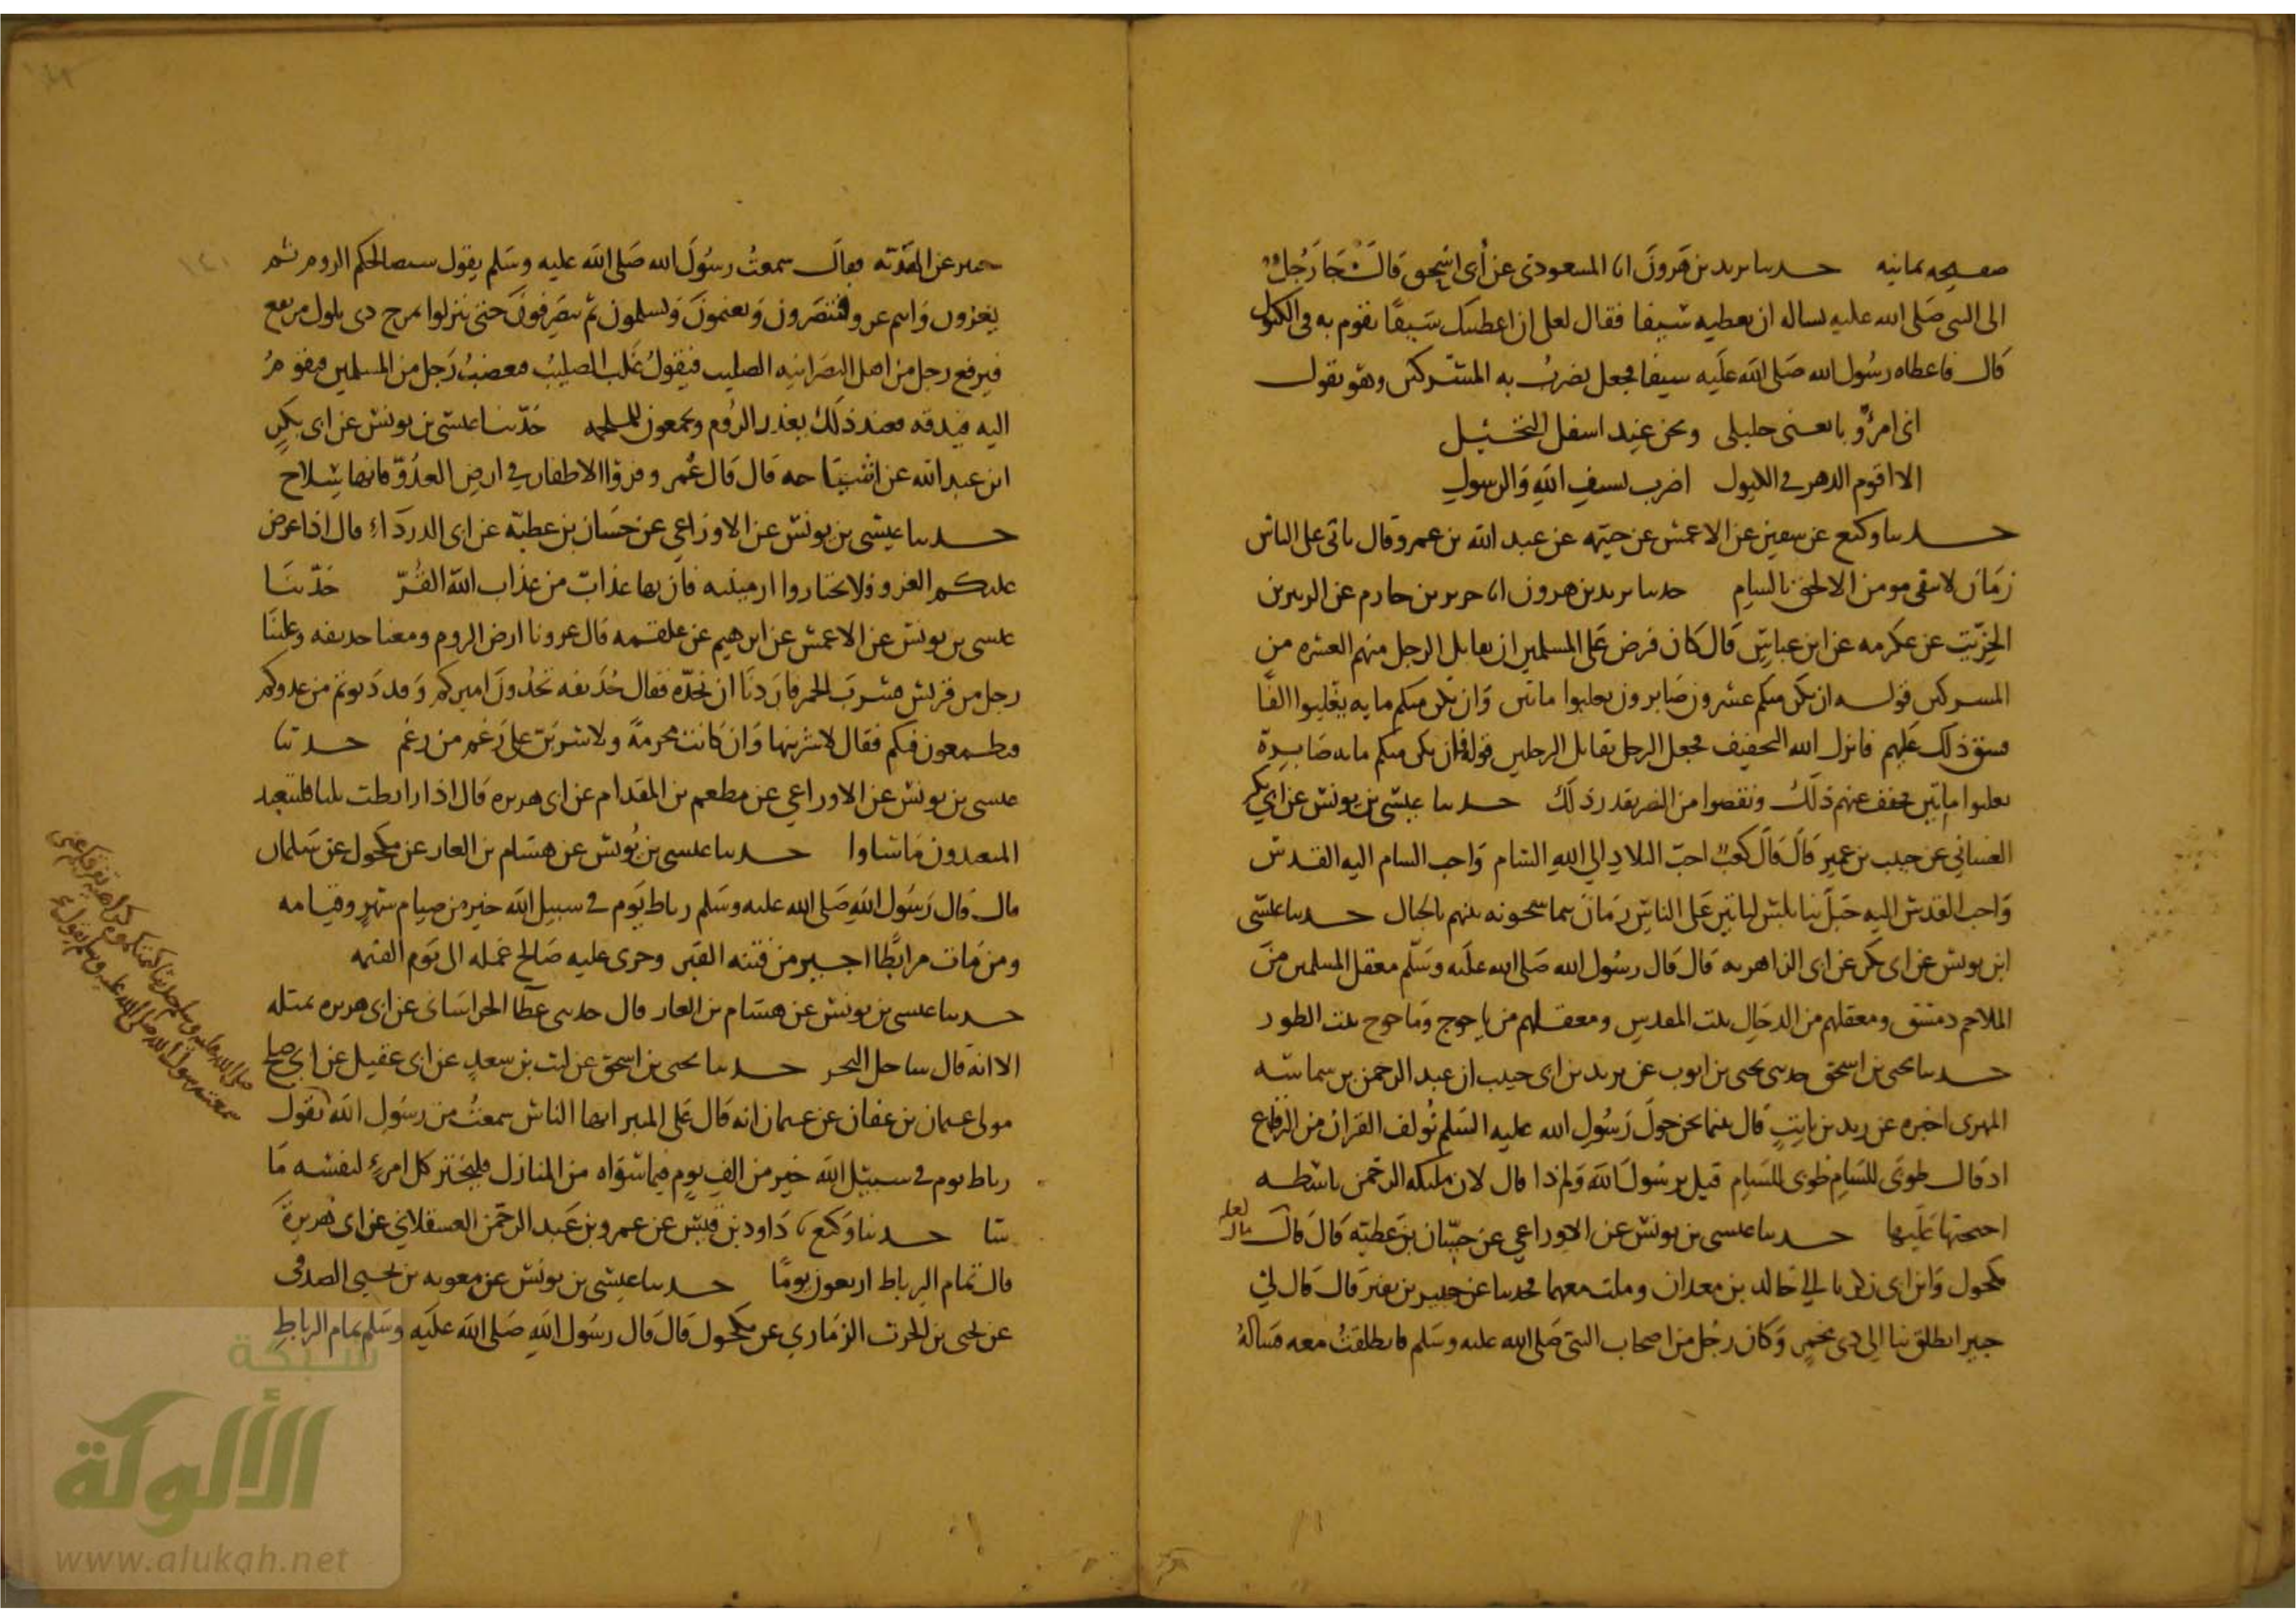 صفيحه يمانيه حدثنا يزيد بن هرون انا المسعودي عن أبي اسحق قال جا رجل
الى النبي صلى الله عليه يساله ان يعطيه سيفا فقال لعلي ان اعطيتك سيفا تقوم به في الكيول
قال فاعطاه رسول الله صلى الله عليه سيفا فجعل يضرب به المشركين وهو يقول
اني امرؤ بايعني خليلي ونحن عند اسفل النخيل
الا اقوم الدهر في الكيول اضرب بسيف الله والرسول
حدثنا وكيع عن سفين عن الاعمش عن خيثمه عن عبد الله بن عمرو قال ياتي على الناس
زمان لا يبقى مومن الا لحق بالشام حدثنا يزيد بن هرون انا جرير بن حازم عن الزبير بن
الخريت عن عكرمه عن ابن عباس قال كان فرض على المسلمين ان يقاتل الرجل منهم العشره من
المشركين قوله ان يكن منكم عشرون صابرون يغلبوا ماتين وان يكن منكم مايه يغلبوا الفا
فشق ذلك عليهم فانزل الله التخفيف فجعل الرجل يقاتل الرجلين قوله فان يكن منكم مايه صابرة
يغلبوا مايتين فخفف عنهم ذلك ونقصوا من النصر بقدر ذلك حدثنا عيسى بن يونس عن ابي بكر
الغساني عن حبيب بن عمير قال قال كعب احب البلاد الي الله الشام واحب الشام اليه القدس
واحب القدس اليه جبل نابلس لياتين على الناس زمان يتماسحونه بينهم بالحبال حدثنا عيسى
ابن يونس عن ابي بكر عن ابي الزاهريه قال قال رسول الله صلى الله عليه وسلم معقل المسلمين من
الملاحم دمشق ومعقلهم من الدجال بيت المقدس ومعقلهم من ياجوج وماجوج بيت الطور
حدثنا يحيى بن اسحق حدثني يحيى بن ايوب عن يزيد بن ابي حبيب ان عبد الرحمن بن شماسه
المهرى اخبره عن زيد بن ثابت قال بينما نحن حول رسول الله عليه السلم نولف القران من الرقاع
اذ قال طوبى للشام طوبى للشام قيل يرسول الله ولم ذا قال لان مليكه الرحمن باسطه
اجنحتها عليها حدثنا عيسى بن يونس عن الاوزاعي عن حسان بن عطيه قال قال
لعله مال
مكحول وابن ابي زكريا الي خالد بن معدان وملت معهما فحدثنا عن جبير بن نفير قال قال لي
جبير انطلق بنا الي ذي مخمر وكان رجل من اصحاب النبي صلى الله عليه وسلم فانطلقت معه فساله
جبير عن الهدنه فقال سمعت رسول الله صلى الله عليه وسلم يقول ستصالحكم الروم ثم
يغزون وانتم عدو فتنتصرون وتغنمون وتسلمون ثم تنصرفون حتى تنزلوا بمرج ذي تلول مرتفع
فيرفع رجل من اهل النصرانيه الصليب فيقول غلب الصليب فيغضب رجل من المسلمين فيقوم
اليه فيدقه فعند ذلك يغدر الروم ويجمعون للملحمه حدثنا عيسى بن يونس عن ابي بكر
ابن عبد الله عن اشياخه قال قال عمر وفروا الاظفار في ارض العدو فانها سلاح
حدثنا عيسى بن يونس عن الاوزاعي عن حسان بن عطيه عن ابي الدرداء قال اذا عرض
عليكم الغزو فلا تختاروا ارمينيه فان بها عذاب من عذاب الله القر حدثنا
عيسى بن يونس عن الاعمش عن ابرهيم عن علقمه قال غزونا ارض الروم ومعنا حذيفه وعلينا
رجل من قريش فشرب الخمر فاردنا ان نحده فقال حذيفه تحدون اميركم وقد دنوتم من عدوكم
فيطمعون فيكم فقال لاشربنها وان كانت محرمة ولاشربن على رغم من رغم حدثنا
عيسى بن يونس عن الاوزاعي عن مطعم بن المقدام عن ابي هريره قال اذا رابطت ثلثا فليتعبد
المتعبدون ما شاوا حدثنا عيسى بن يونس عن هشام بن الغاز عن مكحول عن سلمان
قال قال رسول الله صلى الله عليه وسلم رباط يوم في سبيل الله خير من صيام شهر وقيامه
ومن مات مرابطا اجير من فتنه القبر وجرى عليه صالح عمله الى يوم القيمه
حدثنا عيسى بن يونس عن هشام بن الغاز قال حدثني عطا الخراساني عن ابي هريره بمثله
الا انه قال ساحل البحر حدثنا يحيى بن اسحق عن ليث بن سعد عن ابي عقيل عن ابي صالح
مولى عثمان بن عفان عن عثمان انه قال على المنبر ايها الناس سمعت من رسول الله يقول
رباط يوم في سبيل الله خير من الف يوم فيما سواه من المنازل فليختر كل امرئ لنفسه ما
شا حدثنا وكيع نا داود بن قيس عن عمرو بن عبد الرحمن العسقلاني عن ابي هريرة
قال تمام الرباط اربعون يوما حدثنا عيسى بن يونس عن معويه بن يحيى الصدفي
عن يحيى بن الحرث الزماري عن مكحول قال قال رسول الله صلى الله عليه وسلم تمام الرباط
صلى الله عليه وسلم حديثا كتمتكموه كراهية تفرقكم عني
سمعته رسول الله صلى الله عليه وسلم يقول
١٤١
شبكة
الألوكة
www.alukah.net